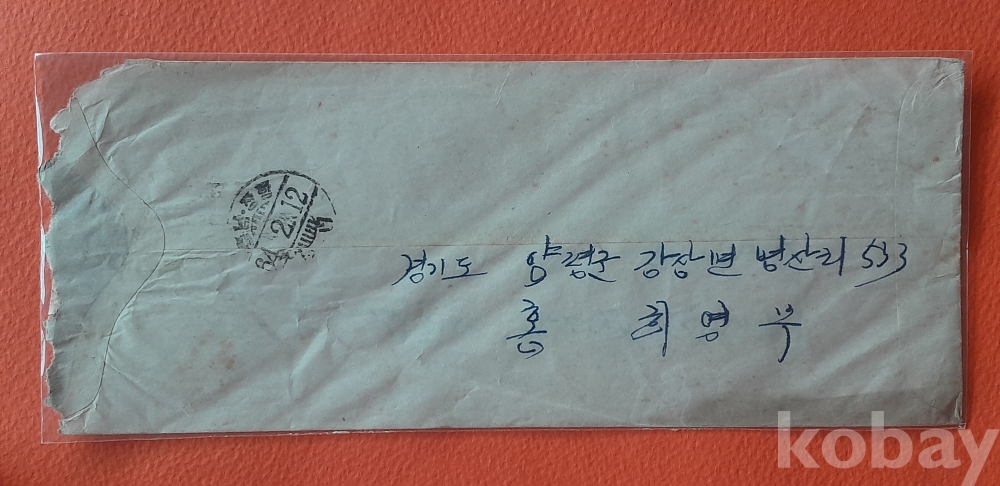 경기도 양평군 강상면 병산리 533
홍 희 영 부
2. 12
kobay